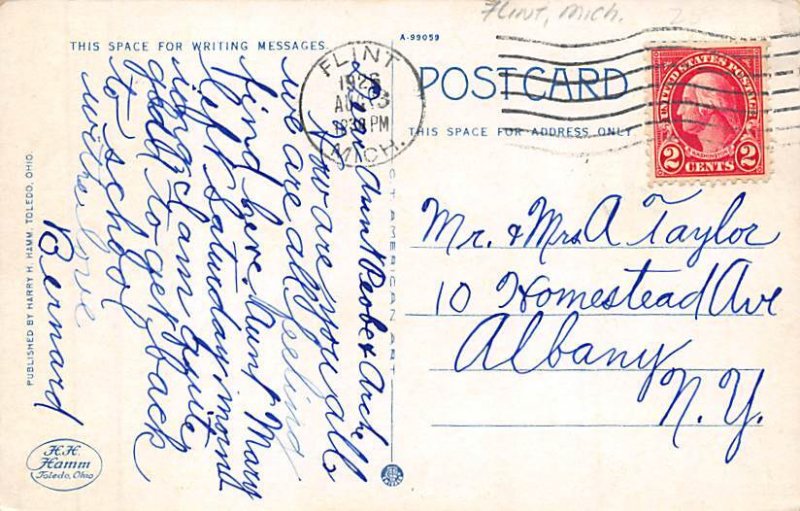 Flint, Mich.
A-99059
THIS SPACE FOR WRITING MESSAGES
POSTCARD
THIS SPACE FOR ADDRESS ONLY
FLINT
1926
AUG 13
PM
MICH.
UNITED STATES POSTAGE
2 CENTS 2
Mr. & Mrs A Taylor
10 Homestead Ave
Albany
N. Y.
Dear Aunt Pebe & Arch
How are you all
we are all feeling
find here. Aunt Mary
left Saturday mornd
ing I am quite
gladd to get back
to school
with love
Bernard
C.T. AMERICAN ART
PUBLISHED BY HARRY H. HAMM, TOLEDO, OHIO.
H.H.
Hamm
Toledo, Ohio